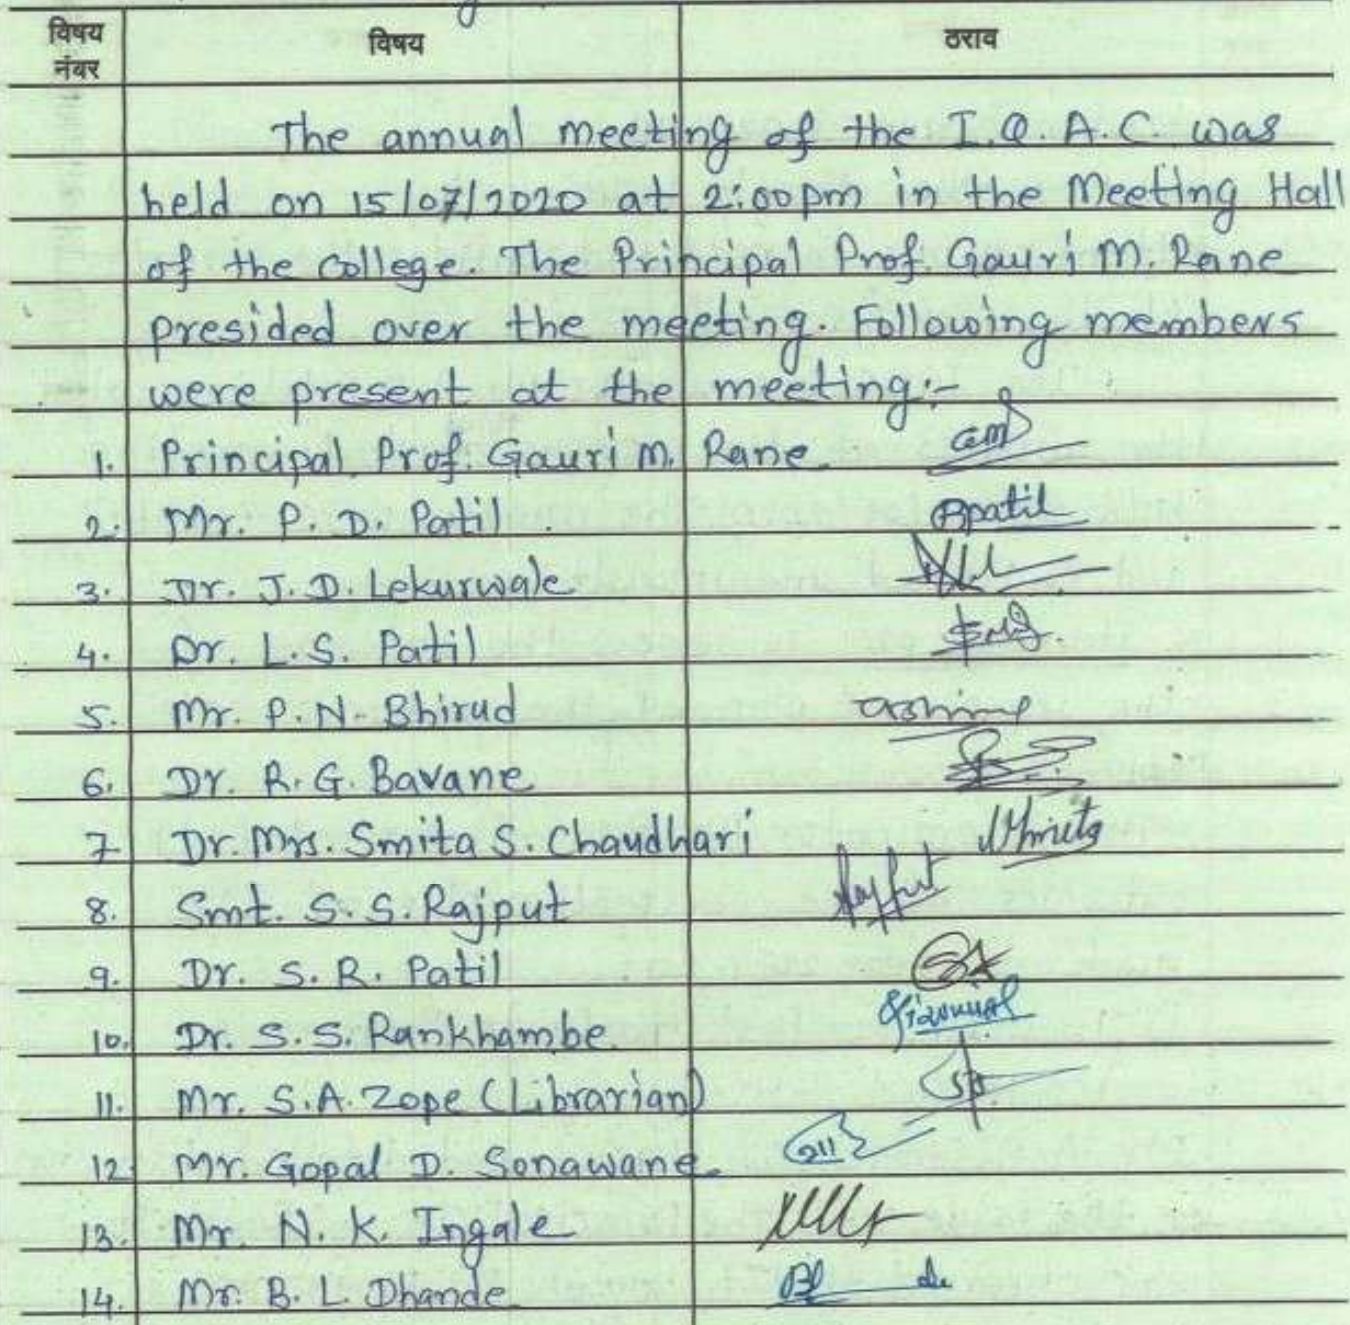 विषय नंबर विषय ठराव
The annual meeting of the I.Q.A.C. was
held on 15/07/2020 at 2:00pm in the Meeting Hall
of the college. The Principal Prof. Gauri M. Rane
presided over the meeting. Following members
were present at the meeting:-
1. Principal Prof. Gauri M. Rane.
2. Mr. P. D. Patil. Patil
3. Dr. J. D. Lekurwale
4. Dr. L. S. Patil
5. Mr. P. N. Bhirud
6. Dr. R. G. Bavane
7 Dr. Mrs. Smita S. Chaudhari
8. Smt. S. S. Rajput Rajput
9. Dr. S. R. Patil
10. Dr. S. S. Rankhambe.
11. Mr. S. A. Zope (Librarian)
12 Mr. Gopal D. Sonawane.
13. Mr. N. K. Ingale
14. Mr. B. L. Dhande